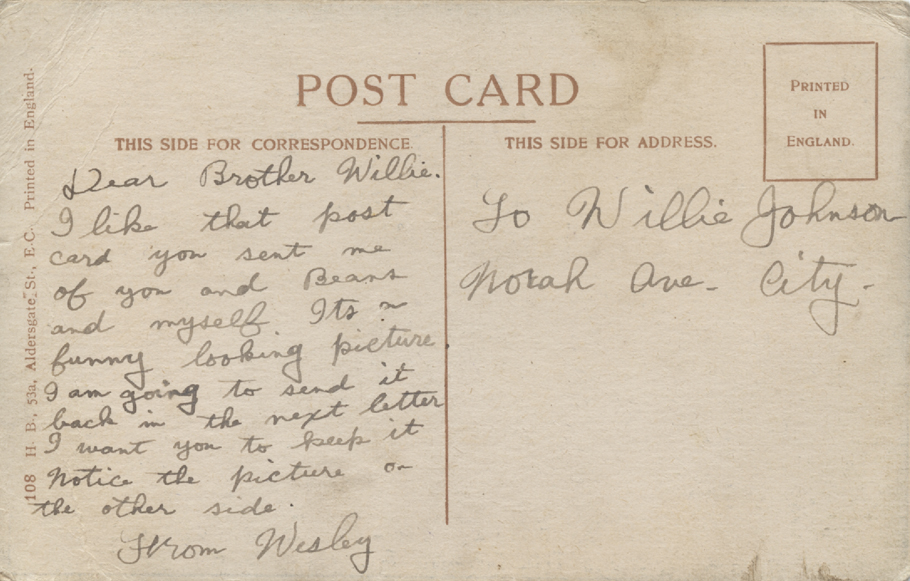 POST CARD
THIS SIDE FOR CORRESPONDENCE.
THIS SIDE FOR ADDRESS.
PRINTED
IN
ENGLAND.
108 H. B., 53a, Aldersgate St., E.C. Printed in England.
Dear Brother Willie.
I like that post
card you sent me
of you and Beans
and myself. Its a
funny looking picture.
I am going to send it
back in the next letter
I want you to keep it
Notice the picture on
the other side.
From Wesley
To Willie Johnson
Norah Ave. City.